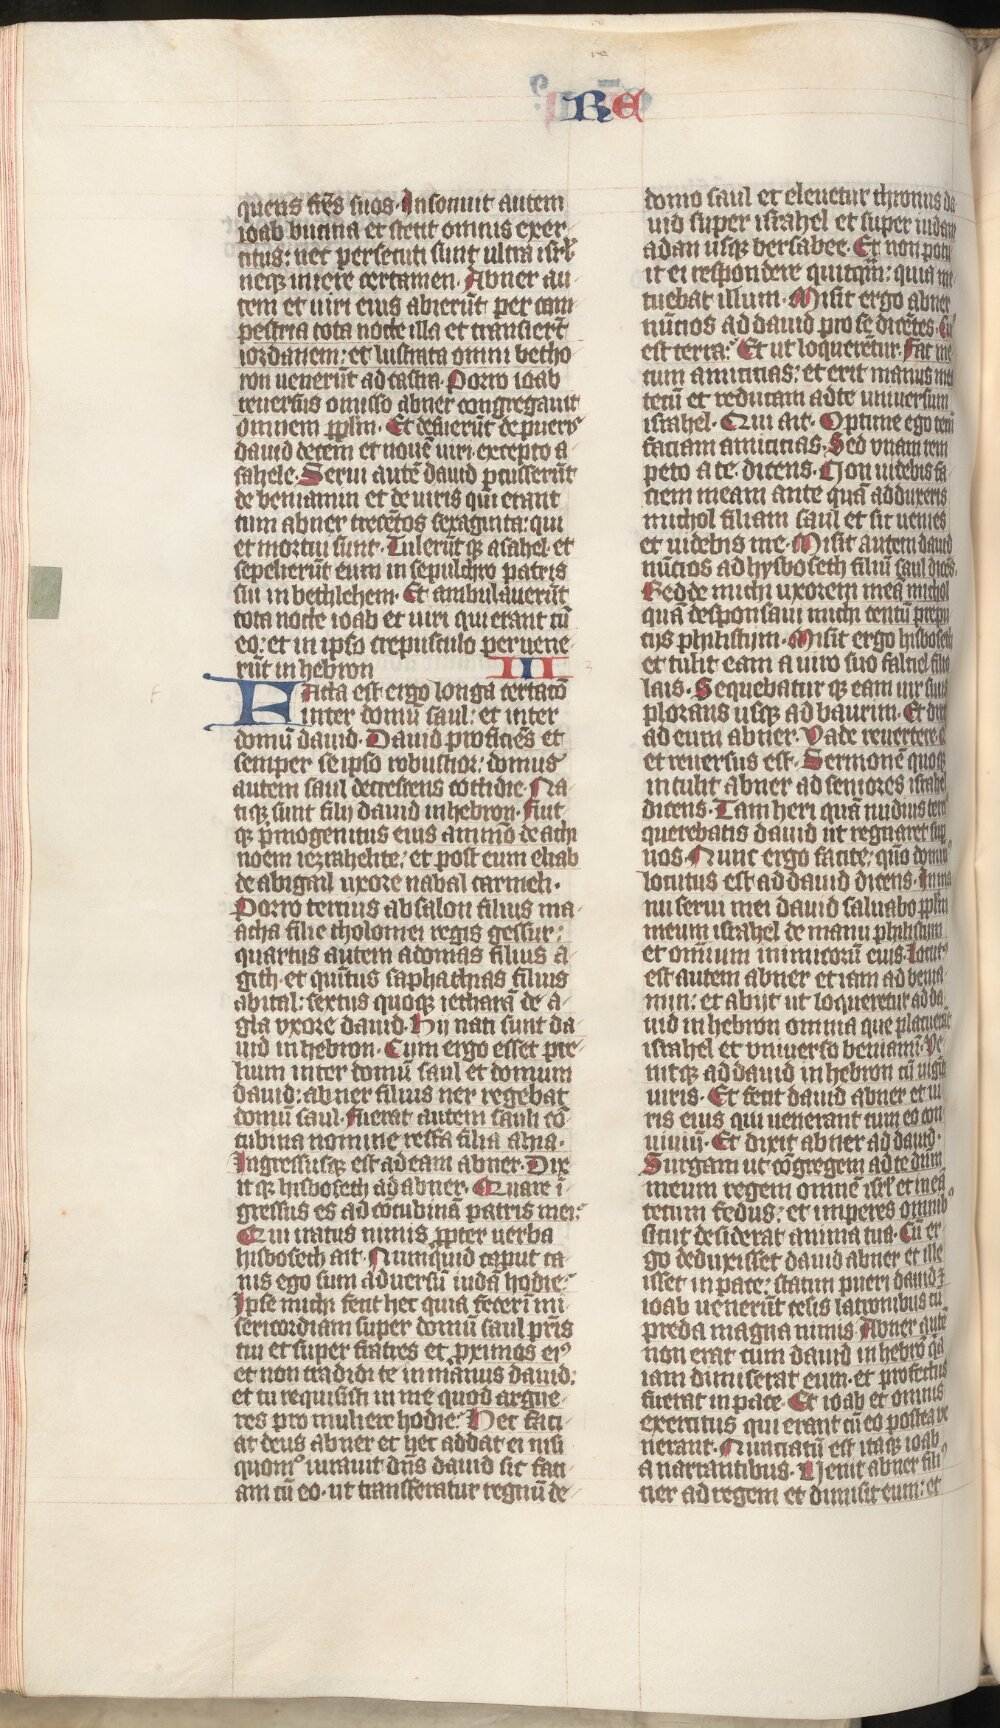 RE
quens frēs suos. Insonuit autem
ioab bucina et stetit omnis exer
citus: nec persecuti sunt ultra isrl
neqꝫ iniere certamen. Abner au
tem et uiri eius abierūt per cam
pestria tota nocte illa et transierūt
iordanem: et lustrata omni betho
ron uenerūt ad castra. Porro ioab
reuersus omisso abner congregauit
omnem pplm. Et defuerūt de pueris
dauid decem et nouē uiri excepto a
sahele. Serui autē dauid pcusserūt
de beniamin et de uiris qui erant
cum abner trecētos sexaginta: qui
et mortui sunt. Tulerūt qꝫ asahel et
sepelierūt eum in sepulchro patris
sui in bethlehem. Et ambulauerūt
tota nocte ioab et uiri qui erant cū
eo: et in ipso crepusculo peruene
rūt in hebron III
Facta est ergo longa certatō
inter domū saul: et inter
domū dauid. Dauid proficiēs et
semper se ipso robustior: domus
autem saul decrescens cottidie. Na
tiqꝫ sunt filij dauid in hebron. Fuit
qꝫ pmogenitus eius ammō de achi
noem iezrahelite: et post eum eliab
de abigail uxore nabal carmeli.
Porro tercius absalon filius ma
acha filie tholomei regis gessur:
quartus autem adomas filius a
gith. et quītus saphathias filius
abital: sextus quoqꝫ iethraā de e
gla uxore dauid. Hij nati sunt da
uid in hebron. Cum ergo esset pre
lium inter domū saul et domum
dauid: abner filius ner regebat
domū saul. Fuerat autem sauli cō
cubina nomine resfa filia ahia.
Ingressusqꝫ est ad eam abner. Dix
it qꝫ hisboseth ad abner. Quare ī
gressus es ad cōcubinā patris mei:
Qui iratus nimis ppter uerba
hisboseth ait. Numquid caput ca
nis ego sum aduersū iudā hodie:
Ipse michi fecit hec quia fecerī mi
sericordiam super domū saul pris
tui et super fratres et pximos ei⁹
et non tradidi te in manus dauid:
et tu requisisti in me quod argue
res pro muliere hodie: Hec faci
at deus abner et hec addat ei nisi
quom⁰ iurauit dn̄s dauid sic faci
am cū eo. ut transferatur regnū de
domo saul et eleuetur thronus da
uid super israhel et super iudam
a dan usqꝫ bersabee. Et non potu
it ei respondere quitqm̄: quia me
tuebat illum. Misit ergo abner
nūcios ad dauid pro se dicētes. Cuˢ
est terra: Et ut loquerētur. Fac me
cum amicicias: et erit manus mea
tecū et reducam ad te uniuersum
israhel. Qui ait. Optime ego tecū
faciam amicicias. Sed unam rem
peto a te. dicens. Non uidebis fa
ciem meam ante quā adduxeris
michol filiam saul et sic uenies
et uidebis me. Misit autem dauid
nūcios ad hysboseth filiū saul dicēs.
Redde michi uxorem meā michol
quā desponsaui michi centū prepu
ciis philistijm. Misit ergo hisboseth
et tulit eam a uiro suo faltiel filio
lais. Sequebatur qꝫ eam uir suus
plorans usqꝫ ad baurim. Et dixit
ad eum abner. Vade reuertere. Q
et reuersus est. Sermonē quoqꝫ
intulit abner ad seniores israhel
dicens. Tam heri quā nudius terci⁹
querebatis dauid ut regnaret sup
uos. Nunc ergo facite: qūo domin⁹
locutus est ad dauid dicens. In ma
nu serui mei dauid saluabo pplm
meum israhel de manu philistijm
et omium inimicorū eius. Locut⁹
est autem abner etiam ad benia
min: et abijt ut loqueretur ad da
uid in hebron omnia que placuerāt
israhel et uniuerso beniamī. Ve
nitqꝫ ad dauid in hebron cū uigīti
uiris. Et fecit dauid abner et ui
ris eius qui uenerant cum eo con
uiuiū. Et dixit abner ad dauid.
Surgam ut cōgregem ad te dūm
meum regem omnē isrl et ineā
tecum fedus: et imperes omnib⁹
sicut desiderat anima tua. Cū er
go deduxisset dauid abner et ille
isset in pace: statim pueri dauid ⁊
ioab uenerūt cesis latronibus cū
preda magna nimis. Abner autē
non erat cum dauid in hebrō qa
iam dimiserat eum. et profectus
fuerat in pace. Et ioab et omnis
exercitus qui erant cū eo postea ve
nerant. Nunciatū est itaqꝫ ioab
a narrantibus. Venit abner fili⁹
ner ad regem et dimisit eum: et